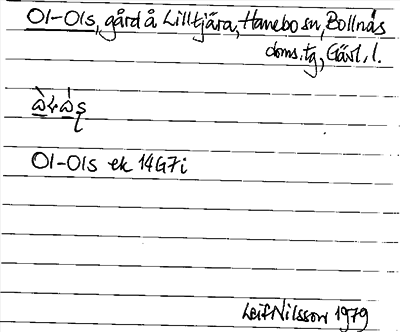 Ol-Ols, gård å Lilltjära, Hanebo sn, Bollnäs
doms.tg, Gävl. l.
Ol-Ols ek 14G7i
Leif Nilsson 1979